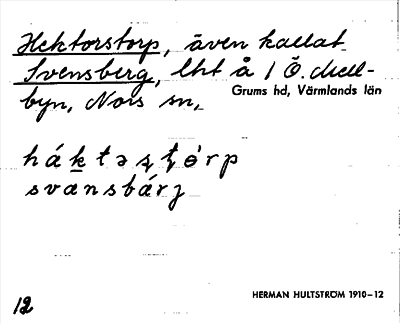 Hektorstorp, även kallat
Svensberg, lht å 1 Ö. Mell-
byn, Nors sn,
Grums hd, Värmlands län
háktəʂʈórp
svänsbárj
12
HERMAN HULTSTRÖM 1910–12